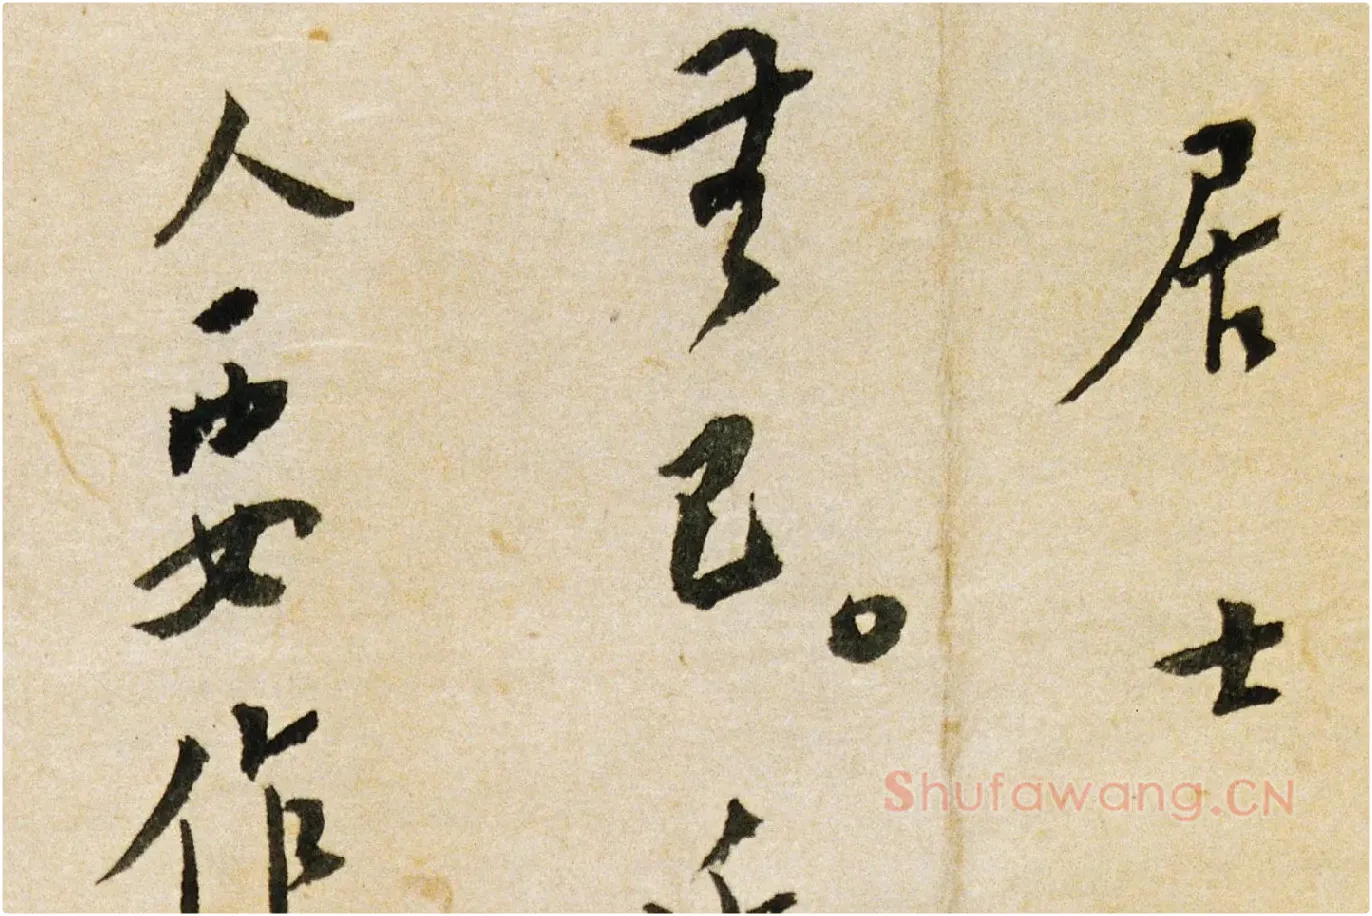 居士
無已。
人要作
Shufawang.CN